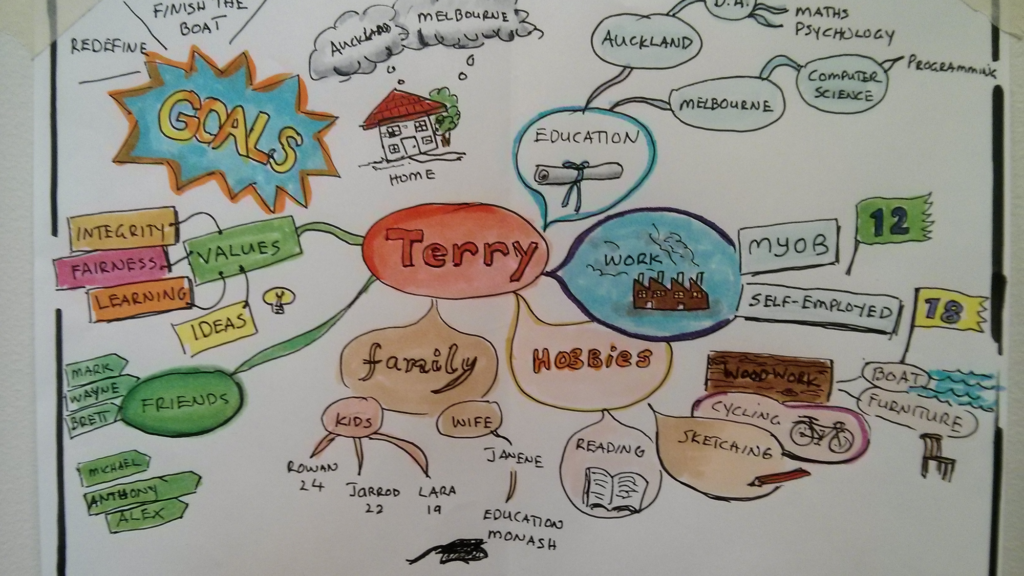 FINISH THE
BOAT
REDEFINE
GOALS
AUCKLAND
MELBOURNE
HOME
B.A.
MATHS
PSYCHOLOGY
AUCKLAND
MELBOURNE
COMPUTER
SCIENCE
PROGRAMMING
EDUCATION
INTEGRITY
FAIRNESS
LEARNING
VALUES
IDEAS
Terry
WORK
MYOB
12
SELF-EMPLOYED
18
family
HOBBIES
MARK
WAYNE
BRETT
FRIENDS
MICHAEL
ANTHONY
ALEX
KIDS
ROWAN
24
JARROD
22
LARA
19
WIFE
JANENE
EDUCATION
MONASH
READING
SKETCHING
CYCLING
WOODWORK
BOAT
FURNITURE